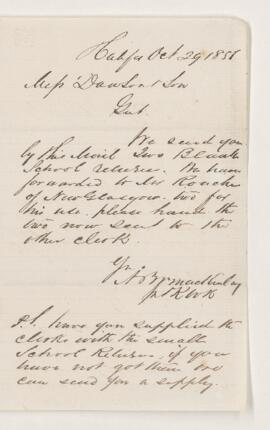 Halifax Oct 29 1856
Messrs Dawson & Son
Gent.
We send you
by this Mail Two Blank
School returns. We have
forwarded to Mr Roach
of New Glasgow two for
his use. please hand the
two now sent to the
other clerk.
Yrs
A & W Mackinlay
P.S. have you supplied the
clerks with the small
School Returns, if you
have not got them we
can send you a supply.